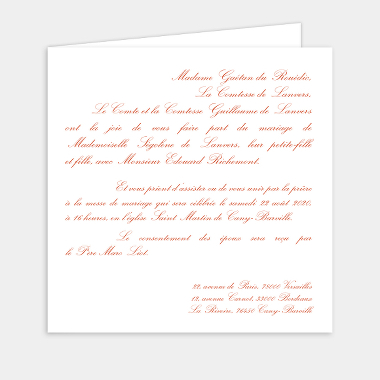 Madame Gaëtan du Ronédic,
La Comtesse de Lanvers,
Le Comte et la Comtesse Guillaume de Lanvers
ont la joie de vous faire part du mariage de
Mademoiselle Ségolène de Lanvers, leur petite-fille
et fille, avec Monsieur Edouard Richemont.
Et vous prient d'assister ou de vous unir par la prière
à la messe de mariage qui sera célébrée le samedi 22 août 2020,
à 16 heures, en l'église Saint Martin de Cany-Barville.
Le consentement des époux sera reçu par
le Père Marc Liot.
22, avenue de Paris, 78000 Versailles
12, avenue Carnot, 33000 Bordeaux
La Rivière, 76450 Cany-Barville